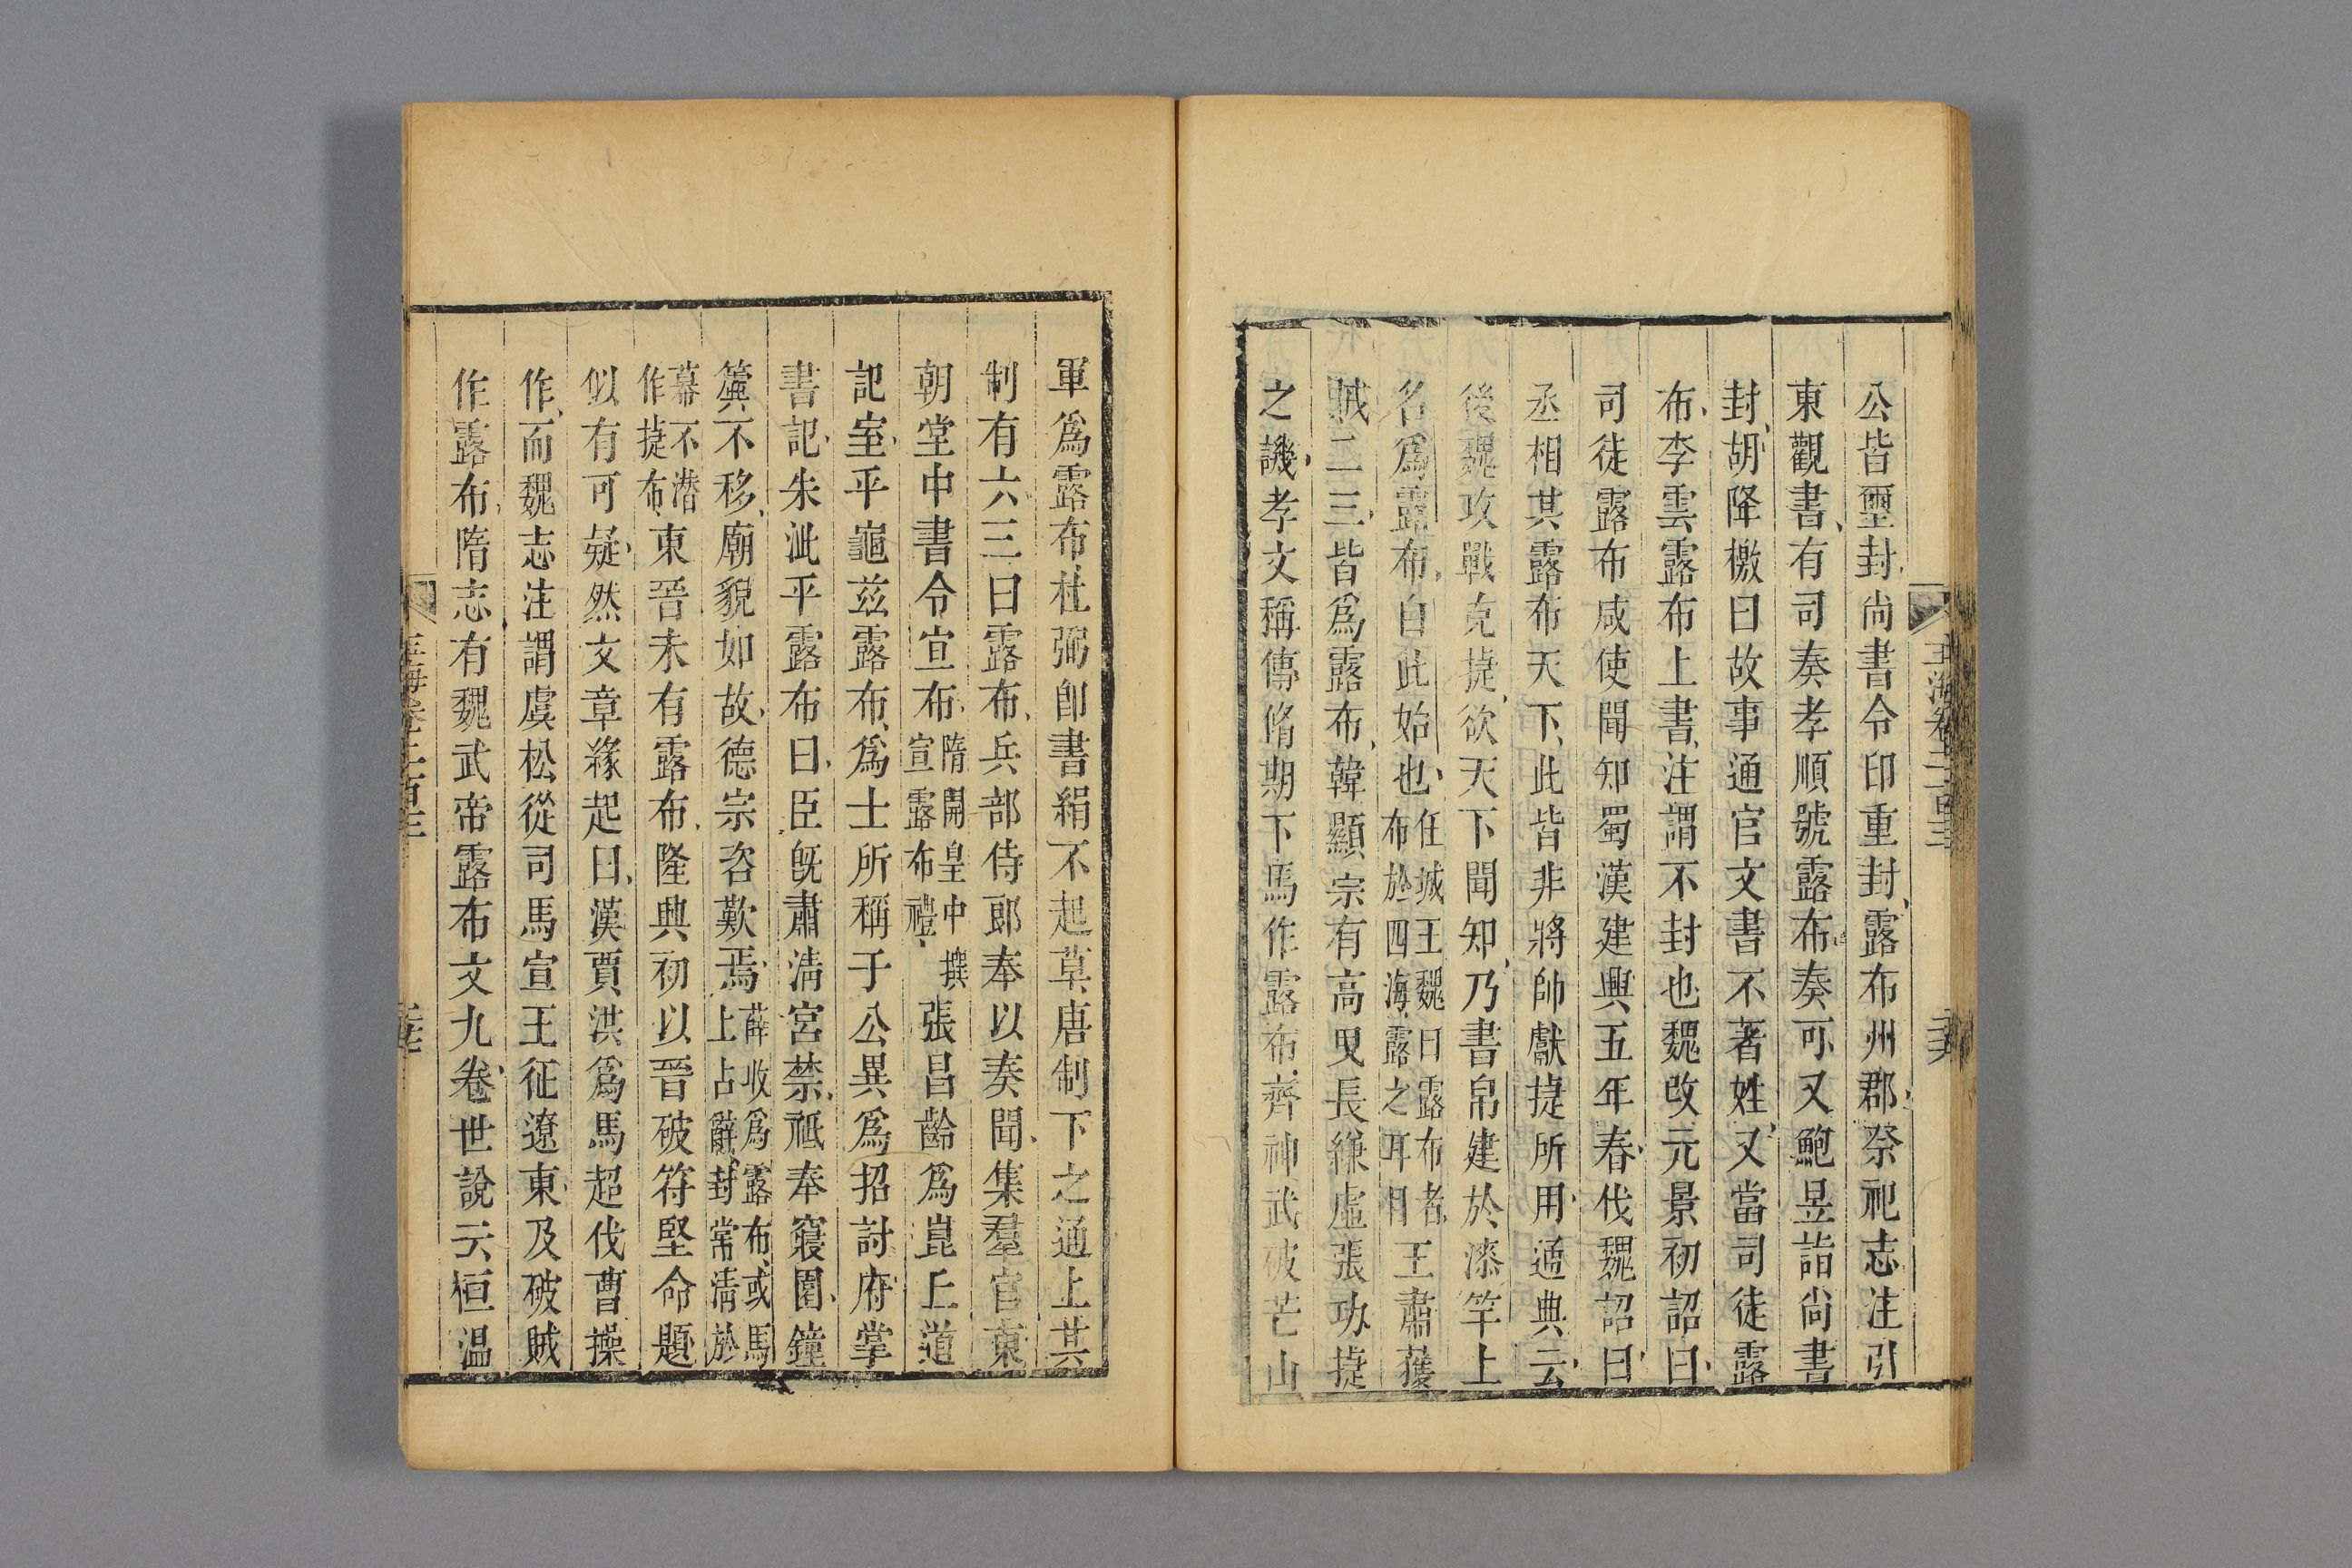 公皆璽封尚書令印重封露布州郡祭祀志注引
東觀書有司奏孝順號露布奏可又鮑昱詣尚書
封胡降檄曰故事通官文書不著姓又當司徒露
布李雲露布上書注謂不封也魏改元景初詔曰
司徒露布咸使聞知蜀漢建興五年春伐魏詔曰
丞相其露布天下此皆非將帥獻捷所用通典云
後魏攻戰克捷欲天下聞知乃書帛建於漆竿上
名爲露布自此始也任城王魏曰露布者布於四海露之耳目王肅獲
賊二三皆爲露布韓顯宗有高曳長縑虛張功捷
之譏孝文稱傅脩期下馬作露布齊神武破芒山
軍爲露布杜弼卽書絹不起草唐制下之通上其
制有六三曰露布兵部侍郎奉以奏聞集羣官東
朝堂中書令宣布隋開皇中撰宣露布禮張昌齡爲崑丘道
記室平龜茲露布爲士所稱于公異爲招討府掌
書記朱泚平露布曰臣旣肅清宮禁祗奉寢園鐘
簴不移廟貌如故德宗咨歎焉薛收爲露布或馬上占辭封常清於
幕不潛作捷布東晉未有露布隆興初以晉破符堅命題
似有可疑然文章緣起曰漢賈洪爲馬超伐曹操
作而魏志注謂虞松從司馬宣王征遼東及破賊
作露布隋志有魏武帝露布文九卷世說云桓温